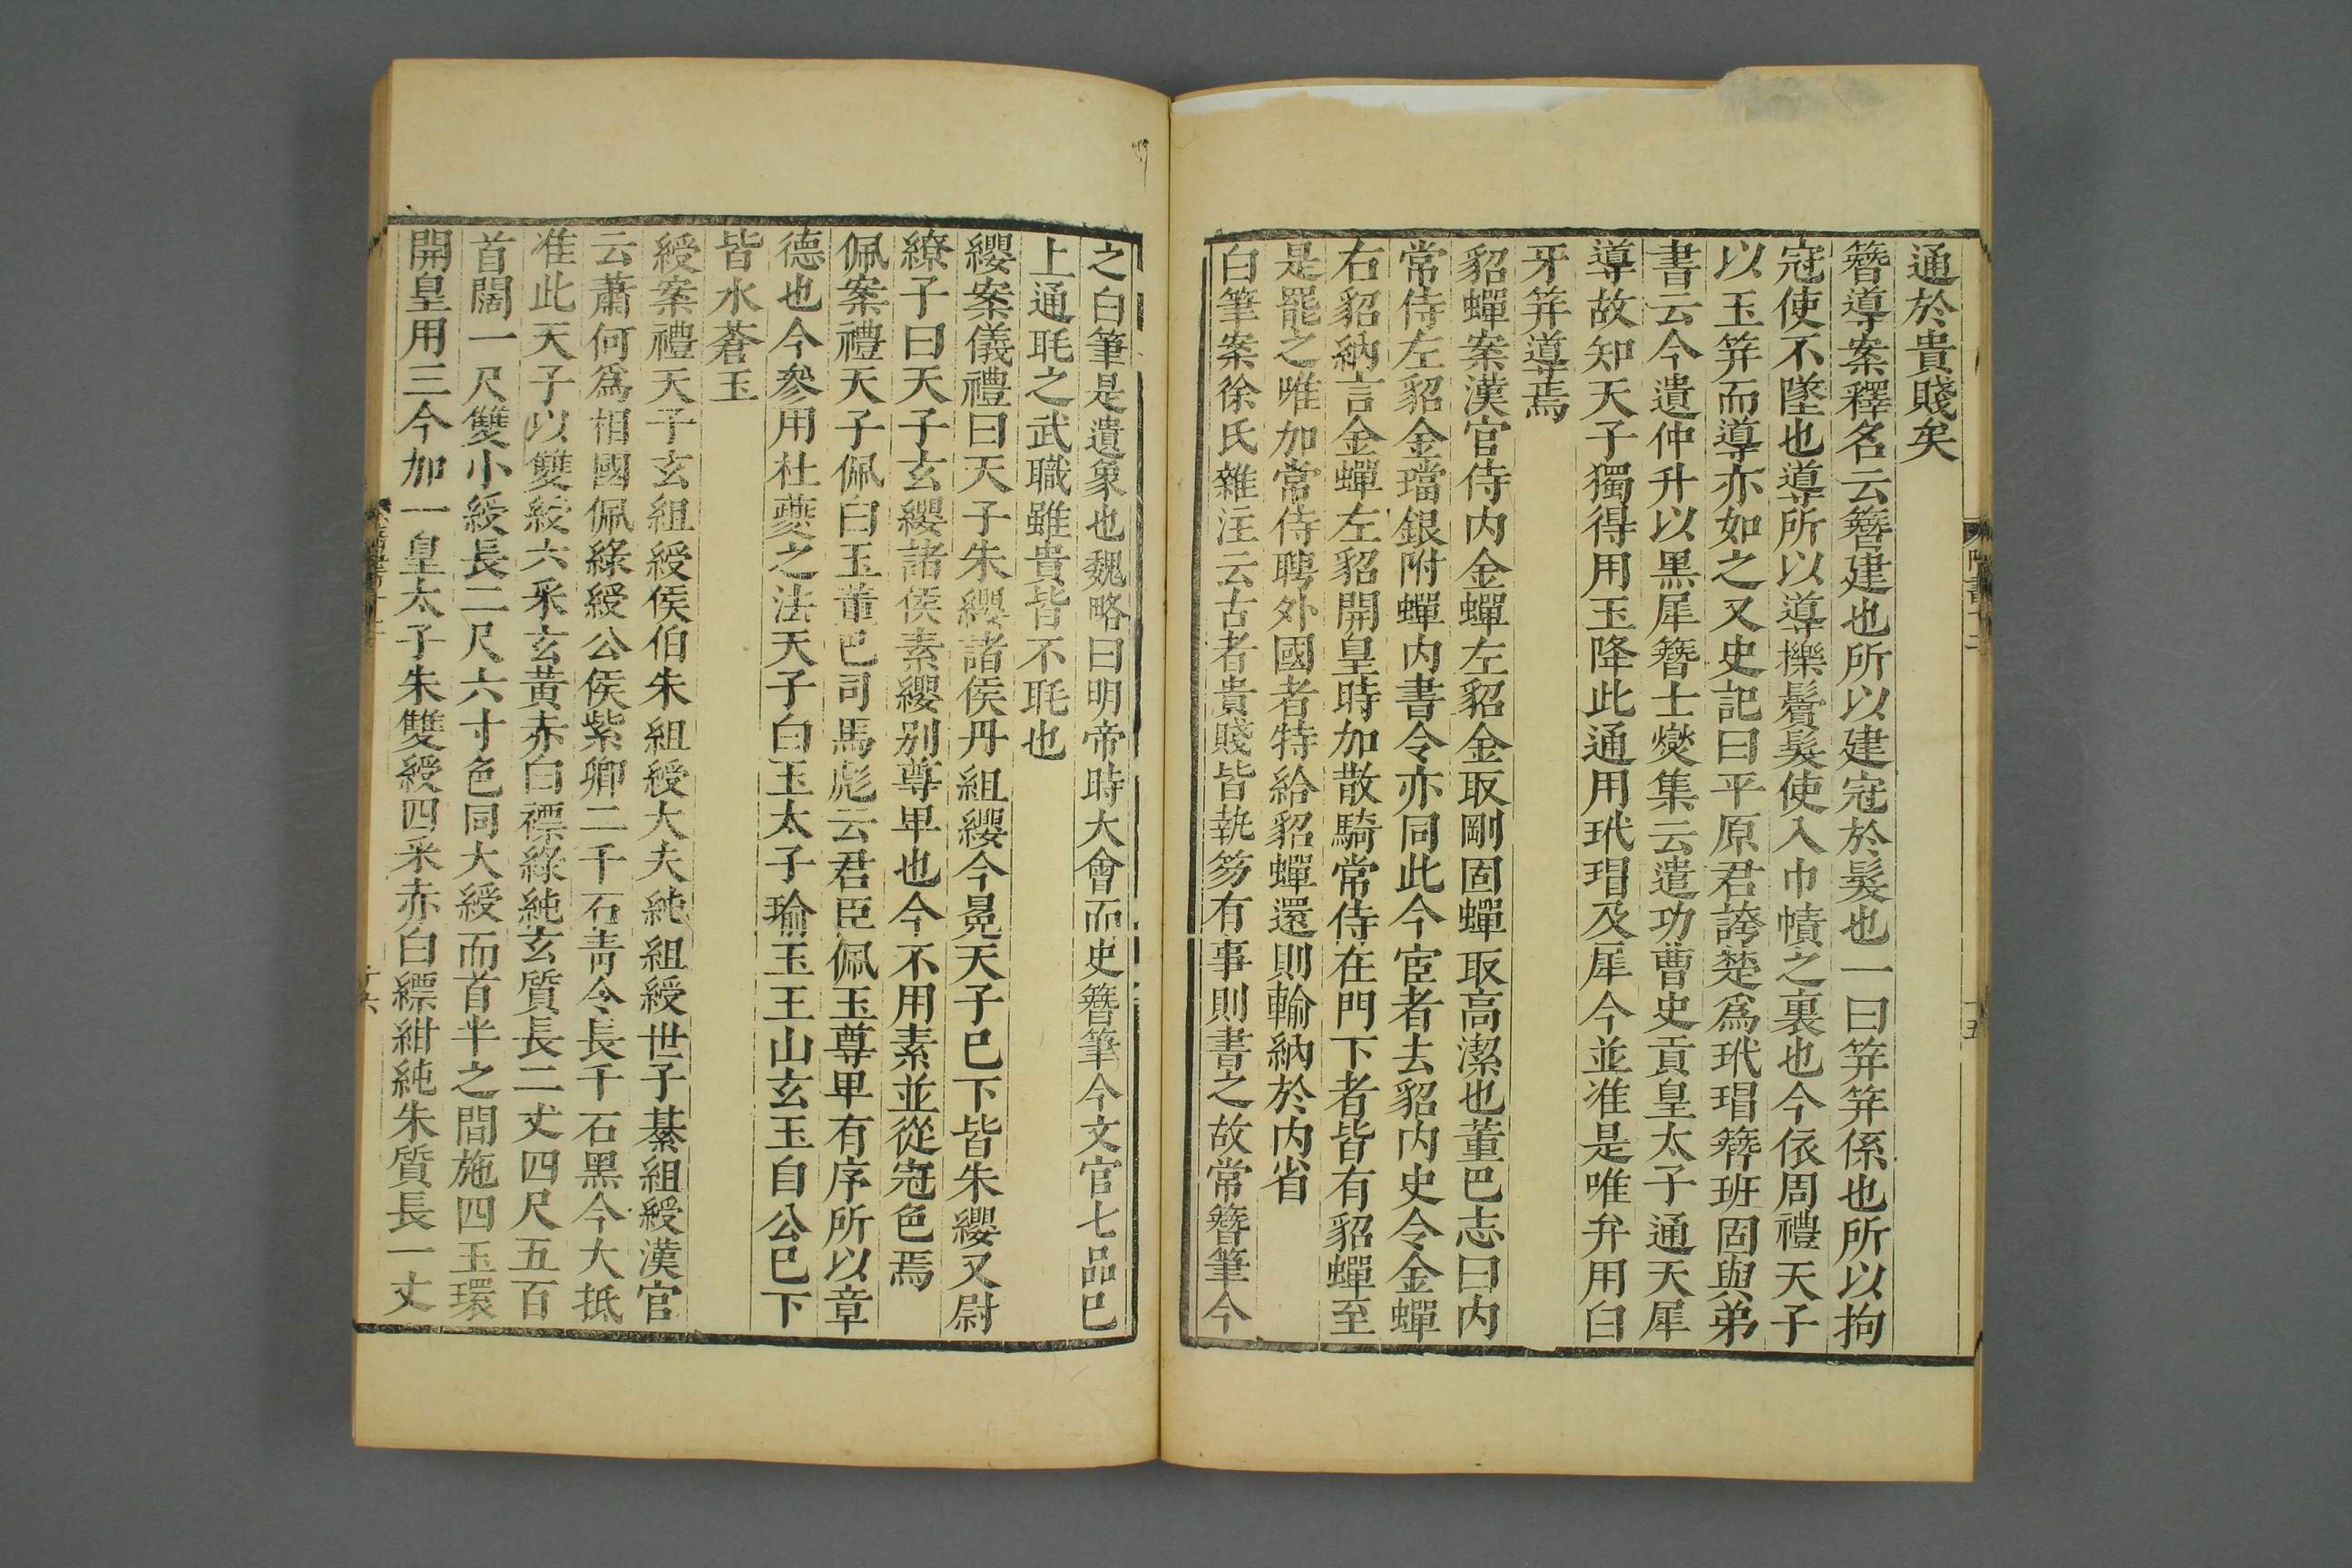 通於貴賤矣
簪導案釋名云簪建也所以建冠於髮也一曰笄笄係也所以拘
冠使不墜也導所以導擽鬢髮使入巾幘之裏也今依周禮天子
以玉笄而導亦如之又史記曰平原君誇楚爲玳瑁簪班固與弟
書云今遺仲升以黑犀簪士燮集云遣功曹史貢皇太子通天犀
導故知天子獨得用玉降此通用玳瑁及犀今並准是唯弁用白
牙笄導焉
貂蟬案漢官侍内金蟬左貂金取剛固蟬取高潔也董巴志曰内
常侍左貂金璫銀附蟬内書令亦同此今宦者去貂内史令金蟬
右貂納言金蟬左貂開皇時加散騎常侍在門下者皆有貂蟬至
是罷之唯加常侍聘外國者特給貂蟬還則輸納於内省
白筆案徐氏雜注云古者貴賤皆執笏有事則書之故常簪筆今
之白筆是遺象也魏略曰明帝時大會而史簪筆今文官七品已
上通毦之武職雖貴皆不毦也
纓案儀禮曰天子朱纓諸侯丹組纓今冕天子已下皆朱纓又尉
繚子曰天子玄纓諸侯素纓别尊卑也今不用素並從冠色焉
佩案禮天子佩白玉董巴司馬彪云君臣佩玉尊卑有序所以章
德也今參用杜夔之法天子白玉太子瑜玉王山玄玉自公已下
皆水蒼玉
綬案禮天子玄組綬侯伯朱組綬大夫純組綬世子綦組綬漢官
云蕭何爲相國佩綠綬公侯紫卿二千石青令長千石黑今大抵
准此天子以雙綬六采玄黄赤白縹綠純玄質長二丈四尺五百
首闊一尺雙小綬長二尺六寸色同大綬而首半之間施四玉環
開皇用三今加一皇太子朱雙綬四采赤白縹紺純朱質長一丈
十六